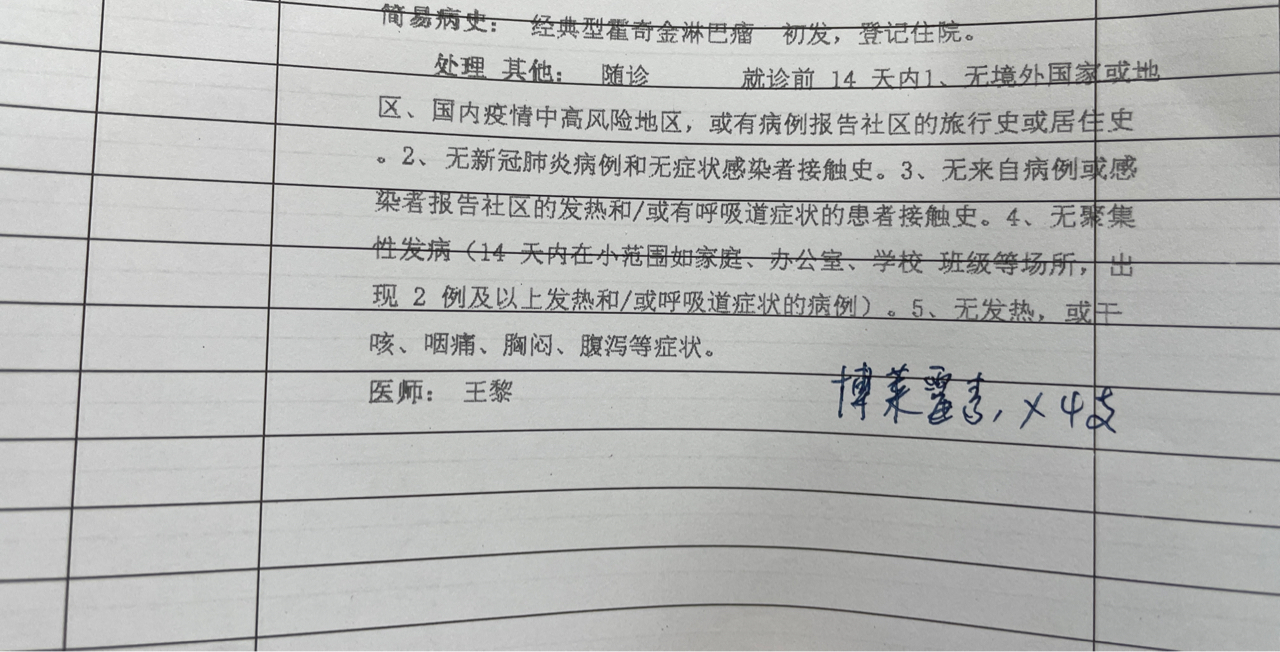 简易病史： 经典型霍奇金淋巴瘤 初发，登记住院。
处理 其他： 随诊 就诊前 14 天内1、无境外国家或地
区、国内疫情中高风险地区，或有病例报告社区的旅行史或居住史
。2、无新冠肺炎病例和无症状感染者接触史。3、无来自病例或感
染者报告社区的发热和/或有呼吸道症状的患者接触史。4、无聚集
性发病（14 天内在小范围如家庭、办公室、学校 班级等场所，出
现 2 例及以上发热和/或呼吸道症状的病例）。5、无发热，或干
咳、咽痛、胸闷、腹泻等症状。
医师： 王黎
博莱霉素，×4支